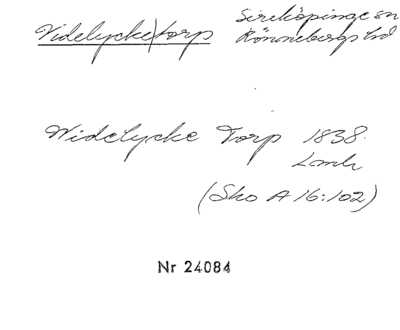 Videlycke|torp Sireköpinge sn
Rönnebergs hd
Widelycke Torp 1838.
Lmh
(Sko A 16:102)
Nr 24084